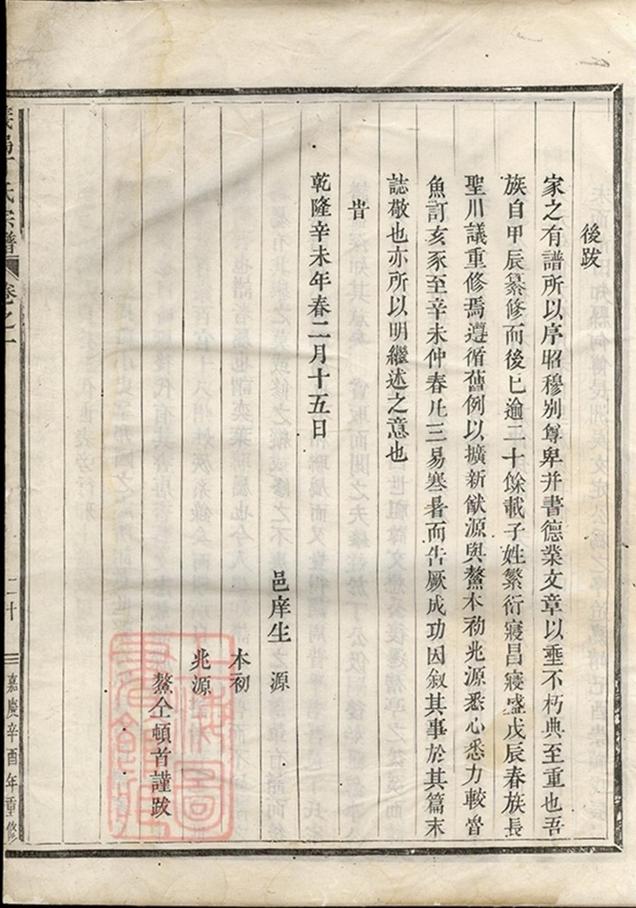 後跋
家之有譜所以序昭穆別尊卑并書德業文章以垂不朽典至重也吾
族自甲辰纂修而後已逾二十餘載子姓繁衍寢昌寢盛戊辰春族長
聖川議重修焉遵循舊例以擴新猷源與鰲本初兆源悉心悉力較晉
魚訂亥豕至辛未仲春凡三易寒暑而告厥成功因叙其事於其篇末
誌敬也亦所以明繼述之意也
旹
乾隆辛未年春二月十五日
邑庠生 源
本初
兆源
鰲仝頓首謹跋
氏宗譜 卷之一 二十 嘉慶辛酉年重修